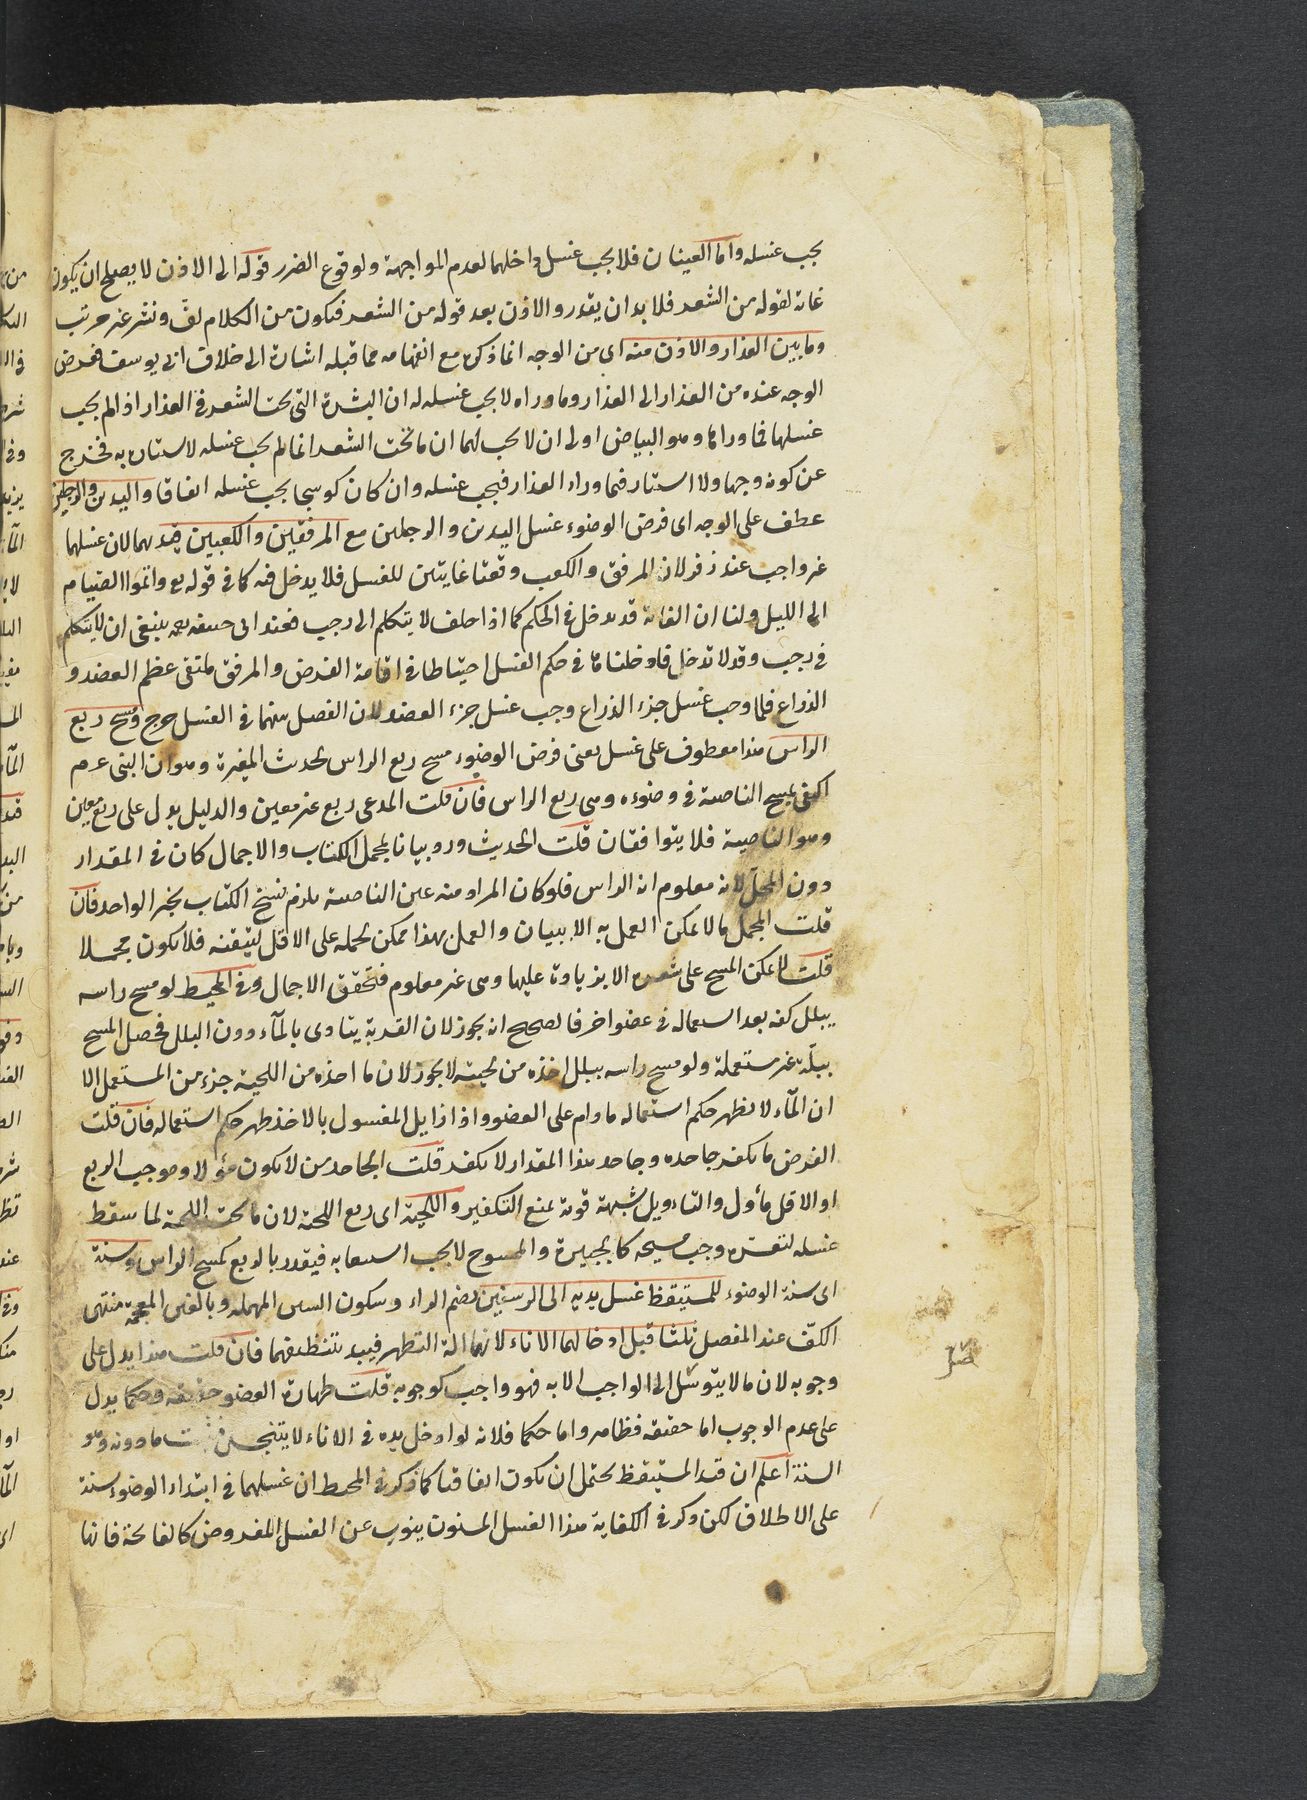 يجب غسله واما العينان فلا يجب غسل داخلهما لعدم المواجهة ولوقوع الضرر قوله الى الاذن لا يصلح ان يكون
غاية لقوله من الشعر فلا بد ان يقدر والاذن بعد قوله من الشعر فيكون من الكلام لف ونشر غير مرتب
وما بين العذار والاذن منه اي من الوجه انما ذكره مع انفهامه مما قبله اشارة الى خلاف ابي يوسف ففرض
الوجه عنده من العذار الى العذار وما وراه لا يجب غسله له ان البشرة التي تحت الشعر في العذار اذا لم يجب
غسلها فما وراها وهو البياض اولى ان لا يجب لهما ان ما تحت الشعر انما لم يجب غسله لاستتاره به فخرج
عن كونه وجها ولا استتار فيما وراء العذار فيجب غسله وان كان كوسجا يجب غسله اتفاقا واليدين والرجلين
عطف على الوجه اى فرض الوضوء غسل اليدين والرجلين مع المرفقين والكعبين قيد بهما لان غسلهما
غير واجب عند زفر لان المرفق والكعب وقعتا غايتين للغسل فلا يدخل فيه كما في قوله تع واتموا الصيام
الى الليل ولنا ان الغاية قد تدخل في الحكم كما اذا حلف لا يتكلم الى رجب فعند ابى حنيفه ينبغى ان لا يتكلم
في رجب وقد لا تدخل فادخلناها في حكم الغسل احتياطا في اقامة الفرض والمرفق ملتقى عظم العضد و
الذراع فلما وجب غسل جزء الذراع وجب غسل جزء العضد لان الفصل بينهما في الغسل حرج ومسح ربع
الراس هذا معطوف على غسل يعنى فرض الوضوء مسح ربع الراس لحديث المغيرة وهو ان النبى عم
اكتفى بمسح الناصية في وضوءه وهى ربع الراس فان قلت المدعى ربع غير معين والدليل يدل على ربع معين
وهو الناصية فلا يتوافقان قلت الحديث ورد بيانا لمجمل الكتاب والاجمال كان في المقدار
دون المحل لانه معلوم انه الراس فلو كان المراد منه عين الناصية يلزم نسخ الكتاب بخبر الواحد فان
قلت المجمل ما لا يمكن العمل به الا ببيان والعمل بهذا ممكن بحمله على الاقل لتيقنه فلا يكون مجملا
قلت لا يمكن المسح على شعره الا بزيادة عليها وهى غير معلوم فتحقق الاجمال وفي المحيط لو مسح راسه
ببلل كفه بعد استعماله في عضو اخر فالصحيح انه يجوز لان القربة يتادى بالمآء دون البلل فحصل المسح
ببلّة غير مستعملة ولو مسح راسه ببلل اخذه من لحيته لا يجوز لان ما اخذه من اللحية جزء من المستعمل الا
ان المآء لا يظهر حكم استعماله ما دام على العضو واذا زايل المغسول بالاخذ ظهر حكم استعماله فان قلت
الفرض ما يكفر جاحده وجاحد هذا المقدار لا يكفر قلت الجاحد من لا يكون مؤولا وموجب الربع
او الاقل مأول والتاويل شبهة قوية يمنع التكفير واللحية اى ربع اللحية لان ما تحت اللحية لما سقط
غسله لتعسّره وجب مسحه كالجبيرة والممسوح لا يجب استيعابه فيقدر بالربع كمسح الراس وسنة
اى سنة الوضوء للمستيقظ غسل يديه الى الرسغين بضم الراء وسكون السين المهمله وبالغين المعجمة منتهى
الكفّ عند المفصل ثلثا قبل ادخالهما الاناء لانهما آلة التطهر فيبد بتنظيفهما فان قلت هذا يدل على
وجوبه لان ما لا يتوسّل الى الواجب الا به فهو واجب كوجوبه قلت طهارة العضو حقيقه وحكما يدل
على عدم الوجوب اما حقيقة فظاهر واما حكما فلانه لو ادخل يده في الاناء لا يتنجس ما دونه وهو
السنة اعلم ان قيد المستيقظ يحتمل ان يكون اتفاقيا كما ذكر في المحيط ان غسلهما في ابتداء الوضوء سنة
على الاطلاق لكن ذكر في الكفاية هذا الغسل المسنون ينوب عن الغسل المفروض كالفاتحة فانها